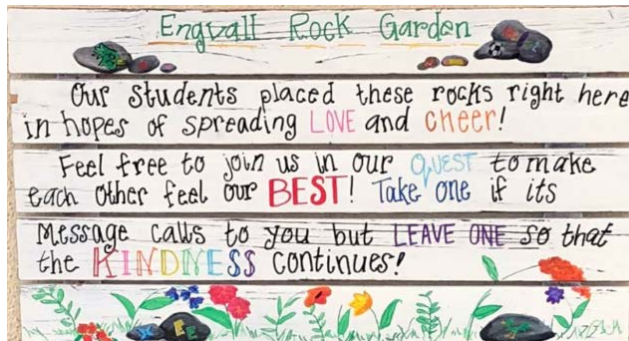 Engvall Rock Garden
Our Students placed these rocks right here
in hopes of spreading LOVE and cheer!
Feel free to join us in our QUEST to make
each other feel our BEST! Take one if its
Message calls to you but LEAVE ONE so that
the KINDNESS continues!